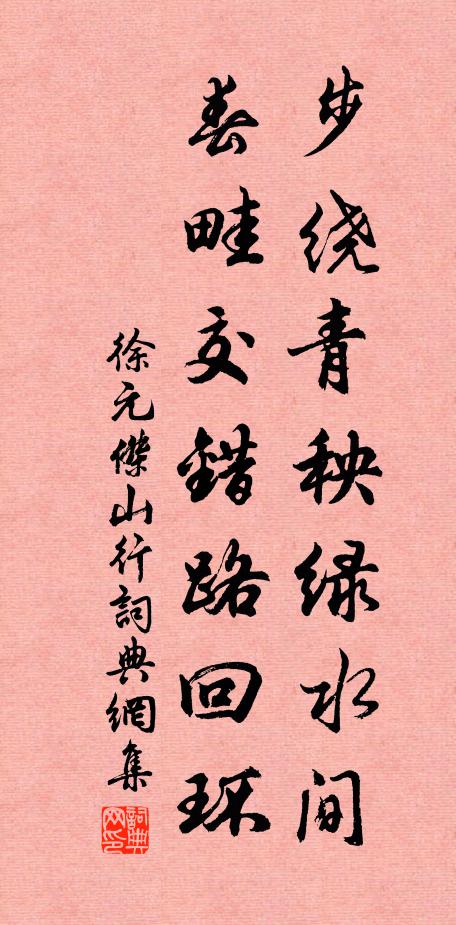 步绕青秧绿水间
春畦交錯路回环
徐元傑山行詞典網集
詞典网印